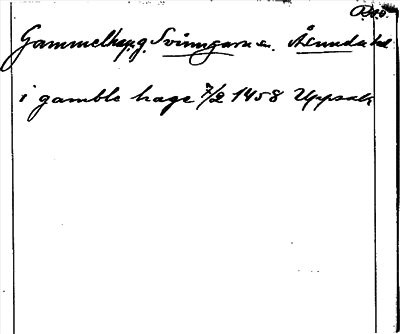 Gammelhag. g. Svinngarns sn. Åsunda hd.
i gamble hage 7/2 1458 Uppsala